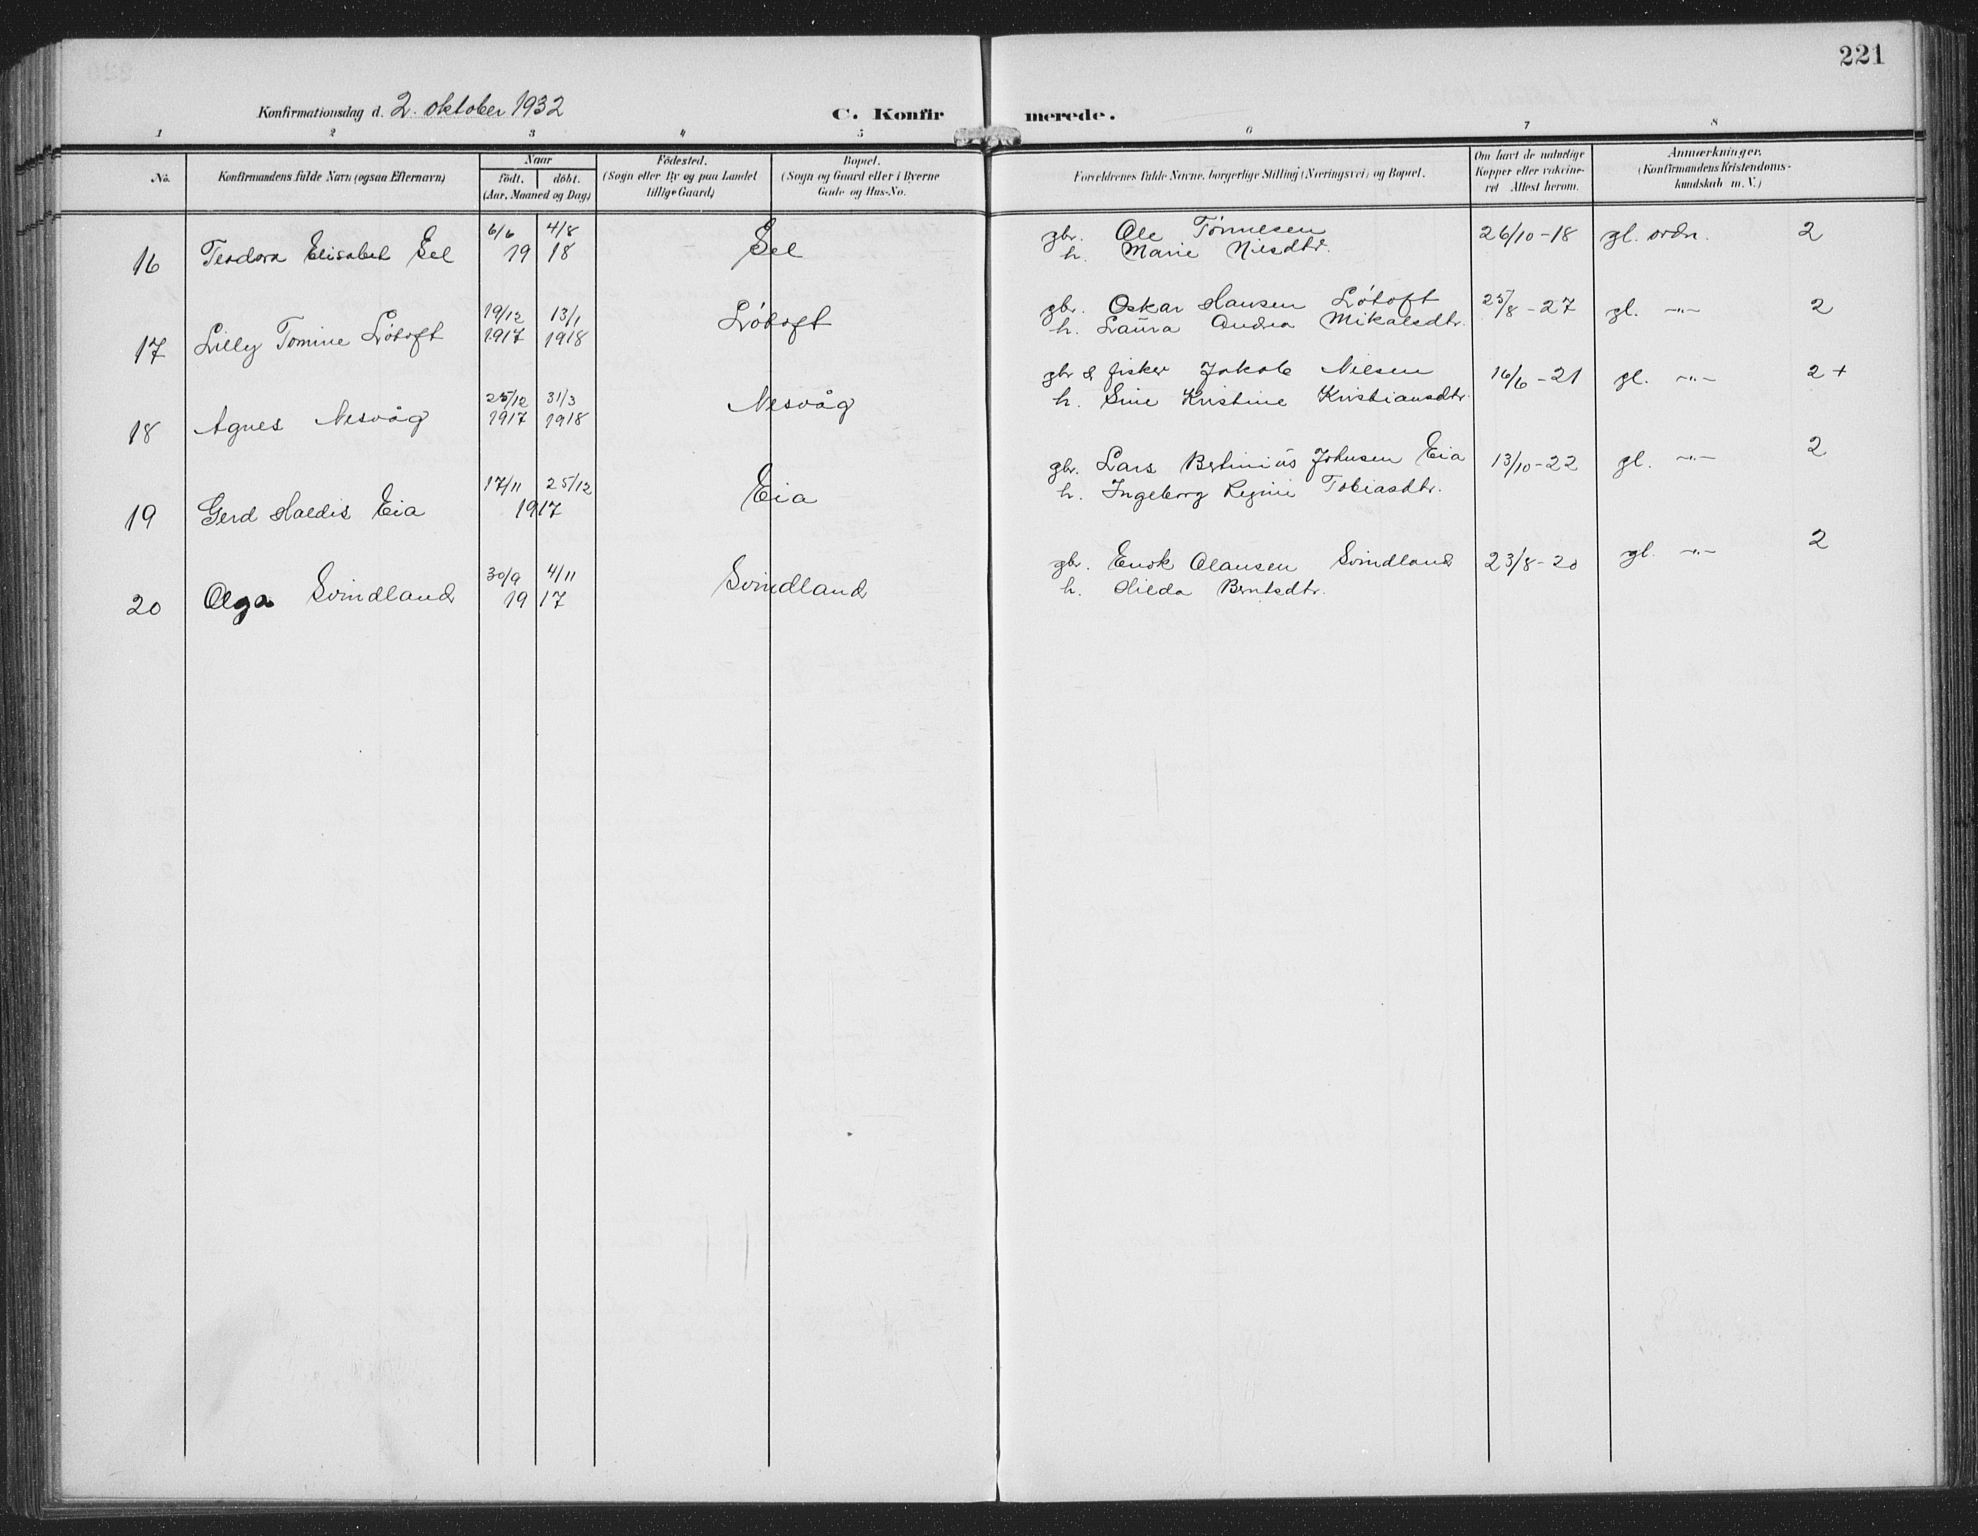 221
Konfirmationsdag d. 2. oktober 1932 C. Konfirmerede.
1 2 3 4 5 6 7 8
No. Konfirmandens fulde Navn (ogsaa Efternavn) Naar født. døbt. (Aar, Maaned og Dag) Fødested. (Sogn eller By og paa Landet tillige Gaard) Bopæl. (Sogn og Gaard eller i Byerne Gade og Hus-No. Forældrenes fulde Navne, borgerlige Stilling (Næringsvei) og Bopæl. Om havt de naturlige Kopper eller vakcineret. Attest herom. Anmærkninger. (Konfirmandens Kristendomskundskab m. V.)
16 Teodora Elisabet Sel 6/6 4/8 19 18 Sel gbr. Ole Tønnesen 26/10-18 gl. ordn. 2
h. Marie Nilsdtr.
17 Lilly Tomine Løtoft 19/12 1917 13/1 1918 Løtoft gbr. Oskar Hansen Løtoft 25/8-27 gl. -"- 2
h. Laura Andrea Mikalsdtr.
18 Agnes Nesvåg 25/12 1917 31/3 1918 Nesvåg gbr & fisker Jakob Nilsen 16/6-21 gl. -"- 2+
h. Sine Kristine Kristiansdtr.
19 Gerd Haldis Eia 17/11 25/12 1917 Eia gbr. Lars Bertinius Johnsen Eia 13/10-22 gl. -"- 2
h. Ingeborg Regine Tobiasdtr.
20 Olga Svindland 30/9 4/11 19 17 Svindland gbr. Enok Olausen Svindland 23/8-20 gl. -"- 2
h. Hilda Berntsdtr.